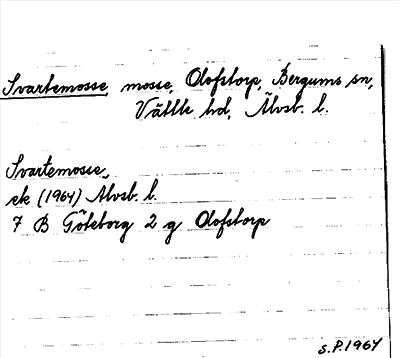 Svartemosse, mosse, Olofstorp, Bergums sn,
Vättle hd, Älvsb. l.
Svartemosse,
ek (1964) Älvsb. l.
7 B Göteborg 2 g Olofstorp
S.P. 1964